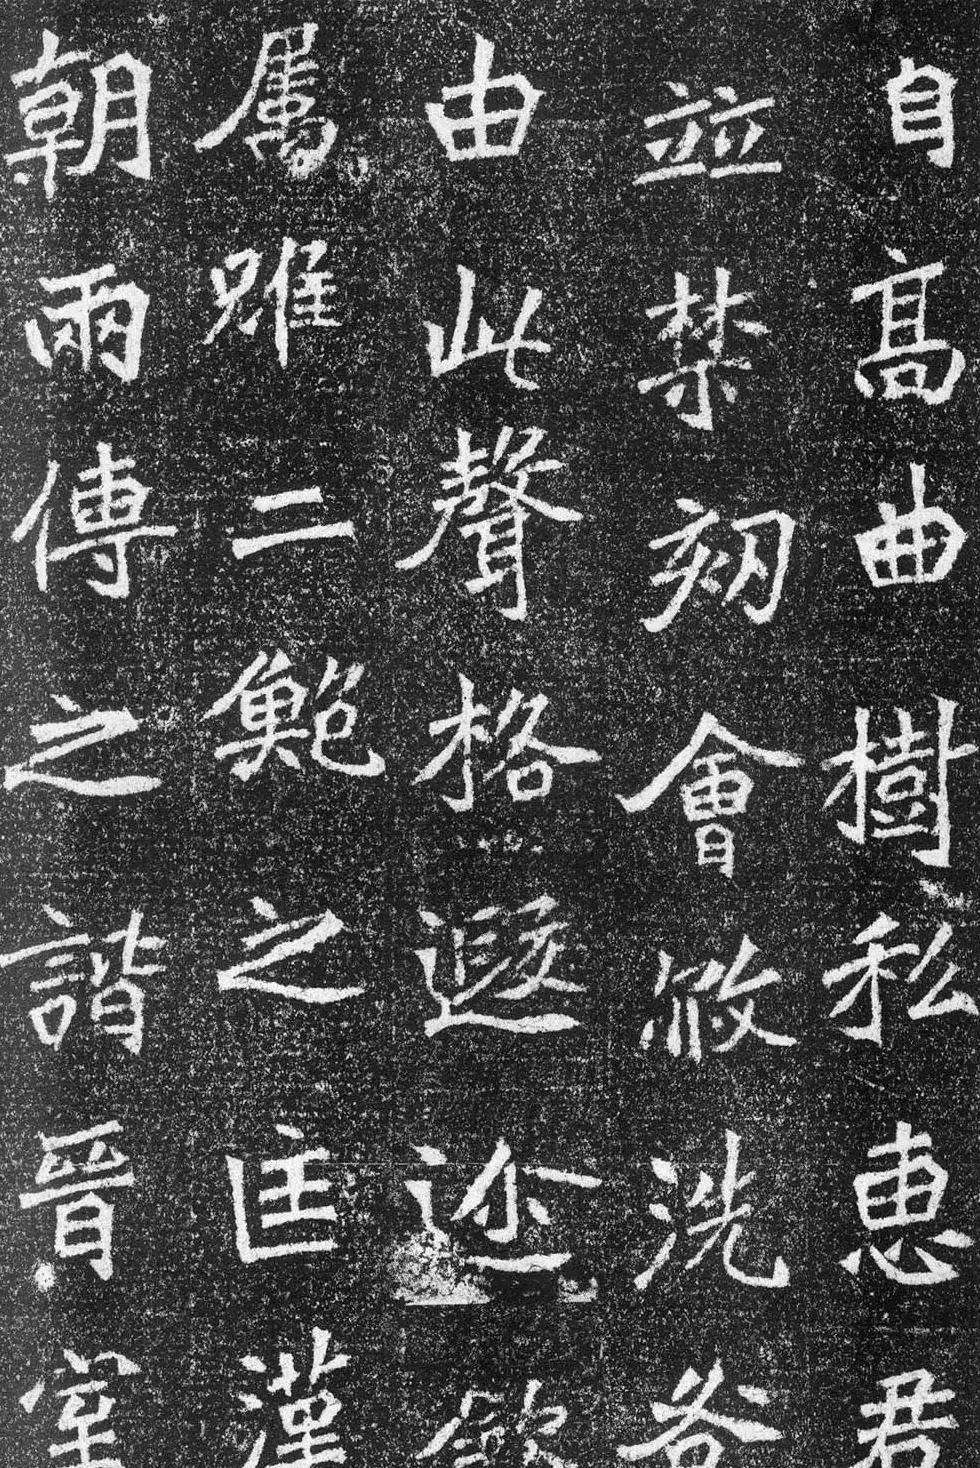 自高曲樹私惠君
並禁劾會攸洗咎
由此聲格遐迩欽
屬雖二鮑之匡漢
朝兩傅之諧晉宰